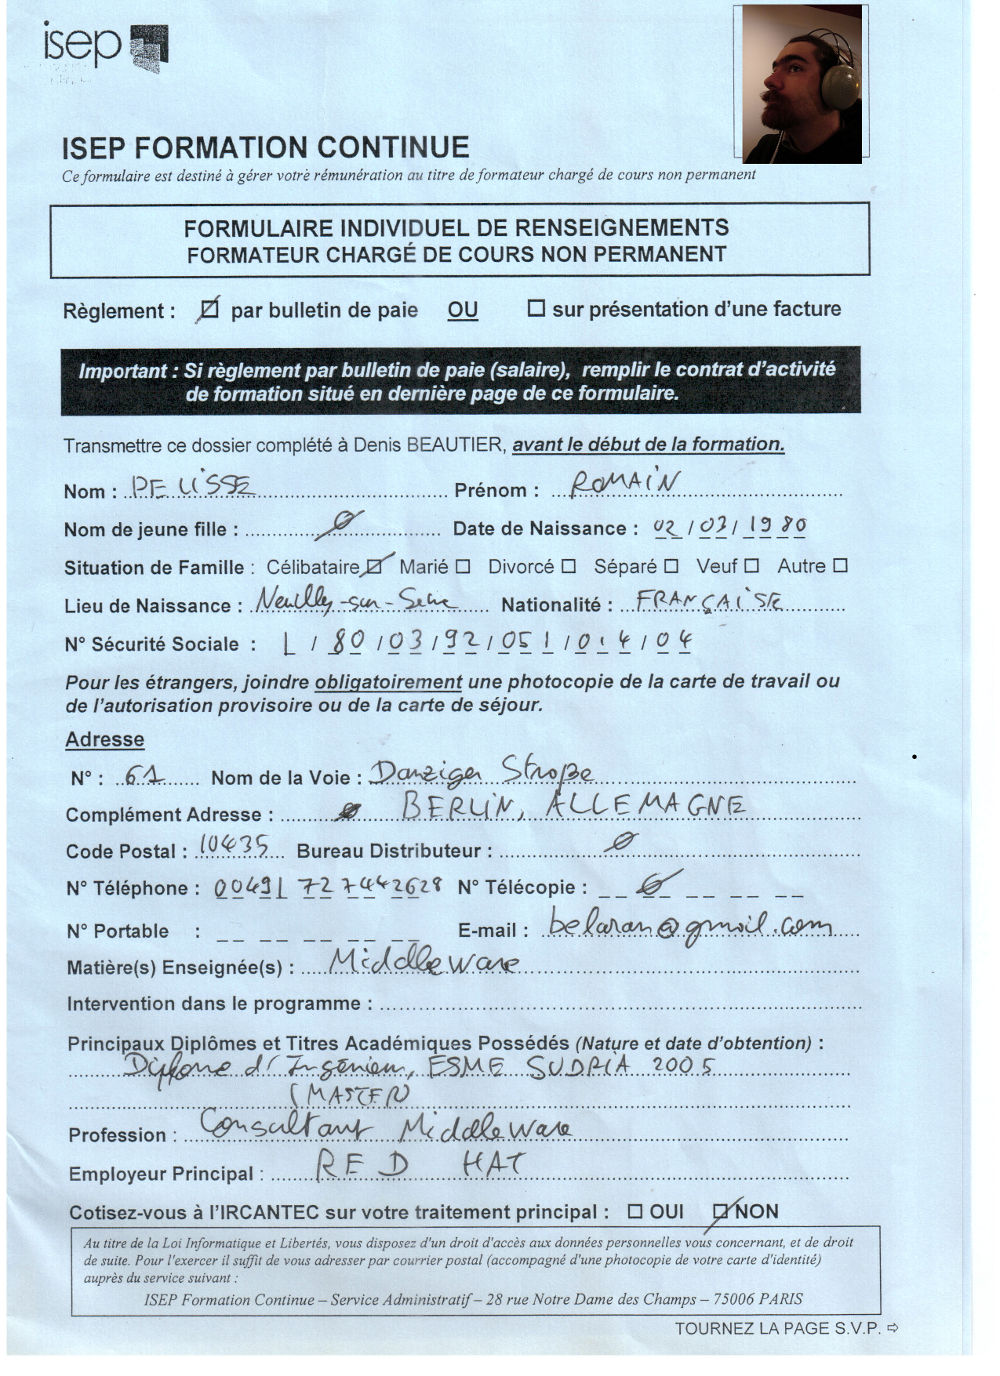 isep
ISEP FORMATION CONTINUE
Ce formulaire est destiné à gérer votre rémunération au titre de formateur chargé de cours non permanent
FORMULAIRE INDIVIDUEL DE RENSEIGNEMENTS
FORMATEUR CHARGÉ DE COURS NON PERMANENT
Règlement : par bulletin de paie OU sur présentation d'une facture
Important : Si règlement par bulletin de paie (salaire), remplir le contrat d'activité
de formation situé en dernière page de ce formulaire.
Transmettre ce dossier complété à Denis BEAUTIER, avant le début de la formation.
Nom : PELISSE Prénom : ROMAIN
Nom de jeune fille : Date de Naissance : 02/03/1980
Situation de Famille : Célibataire Marié Divorcé Séparé Veuf Autre
Lieu de Naissance : Neuilly-sur-Seine Nationalité : FRANÇAISE
N° Sécurité Sociale : 1/80/03/92/051/014/04
Pour les étrangers, joindre obligatoirement une photocopie de la carte de travail ou
de l'autorisation provisoire ou de la carte de séjour.
Adresse
N° : 61 Nom de la Voie : Danziger Straße
Complément Adresse : BERLIN, ALLEMAGNE
Code Postal : 10435 Bureau Distributeur :
N° Téléphone : 00491 727442628 N° Télécopie :
N° Portable : E-mail : belaran@gmail.com
Matière(s) Enseignée(s) : Middleware
Intervention dans le programme :
Principaux Diplômes et Titres Académiques Possédés (Nature et date d'obtention) :
Diplome d'Ingénieur, ESME SUDRIA 2005
(MASTER)
Profession : Consultant Middleware
Employeur Principal : RED HAT
Cotisez-vous à l'IRCANTEC sur votre traitement principal : OUI NON
Au titre de la Loi Informatique et Libertés, vous disposez d'un droit d'accès aux données personnelles vous concernant, et de droit
de suite. Pour l'exercer il suffit de vous adresser par courrier postal (accompagné d'une photocopie de votre carte d'identité)
auprès du service suivant :
ISEP Formation Continue – Service Administratif – 28 rue Notre Dame des Champs – 75006 PARIS
TOURNEZ LA PAGE S.V.P. ⇨